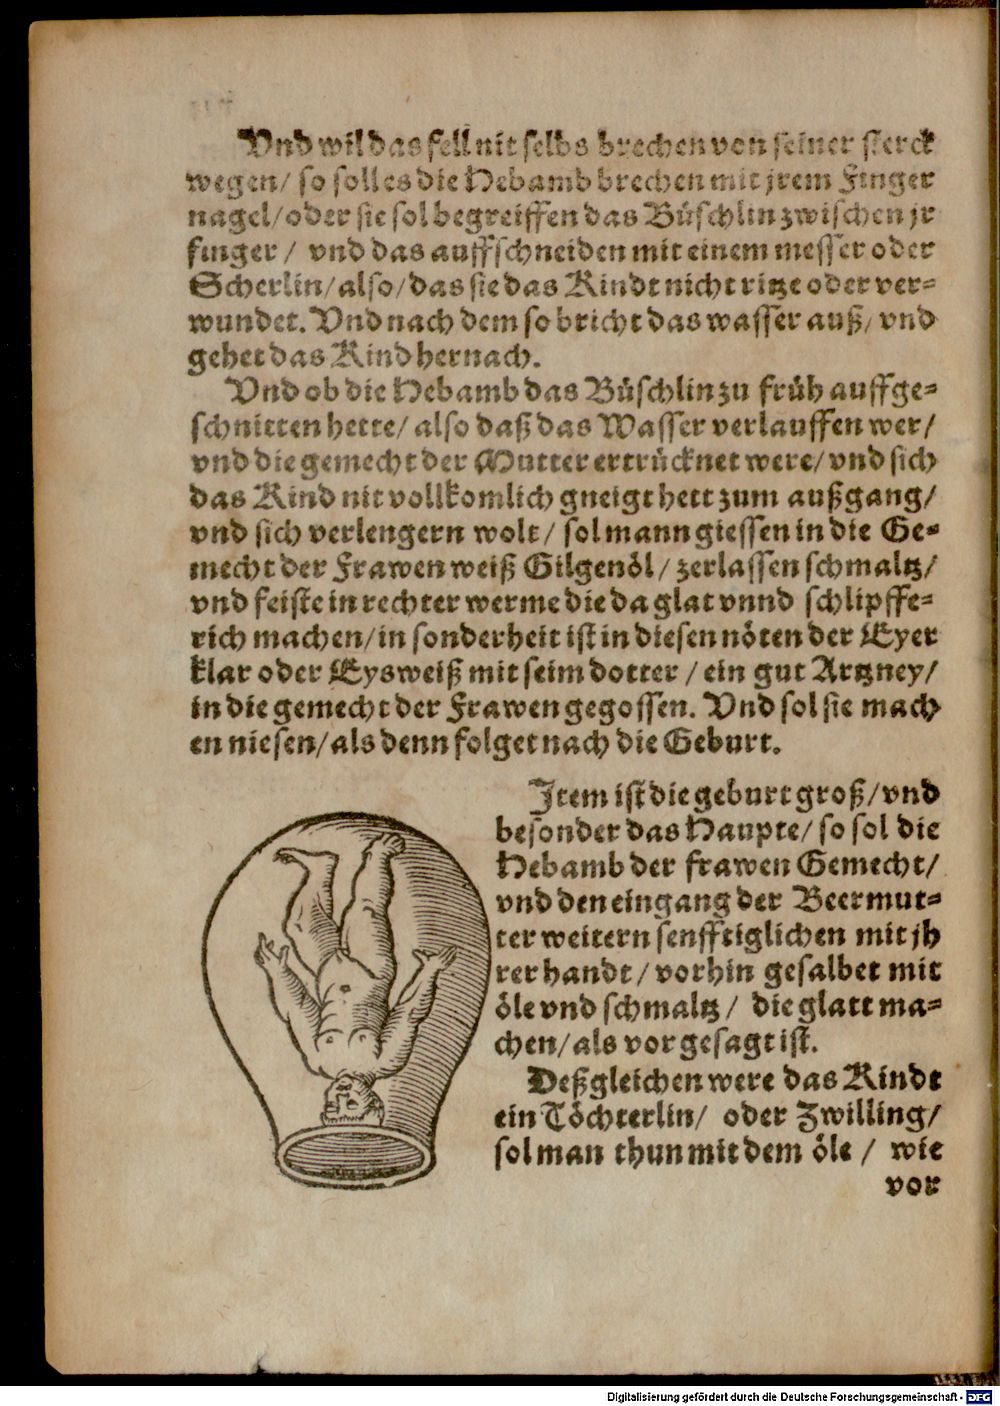 Vnd wil das fell nit selbs brechen von seiner sterck
wegen/ so soll es die Hebamb brechen mit jrem Finger
nagel/ oder sie sol begreiffen das Büschlin zwischen jr
finger / vnd das auffschneiden mit einem messer oder
Scherlin/ also/ das sie das Kindt nicht ritze oder ver-
wundet. Vnd nach dem so bricht das wasser auß/ vnd
gehet das Kind hernach.
Vnd ob die Hebamb das Büschlin zu früh auffge-
schnitten hette/ also daß das Wasser verlauffen wer/
vnd die gemecht der Mutter ertrücknet were/ vnd sich
das Kind nit vollkomlich gneigt hett zum außgang/
vnd sich verlengern wolt/ sol mann giessen in die Ge-
mecht der Frawen weiß Gilgenöl/ zerlassen schmaltz/
vnd feiste in rechter werme die da glat vnnd schlipffe-
rich machen/ in sonderheit ist in diesen nöten der Eyer
klar oder Eysweiß mit seim dotter / ein gut Artzney/
in die gemecht der Frawen gegossen. Vnd sol sie mach
en niesen/ als denn folget nach die Geburt.
Item ist die geburt groß/ vnd
besonder das Haupte/ so sol die
Hebamb der frawen Gemecht/
vnd den eingang der Beermut-
ter weitern senfftiglichen mit jh
rer handt/ vorhin gesalbet mit
öle vnd schmaltz/ die glatt ma-
chen/ als vor gesagt ist.
Deßgleichen were das Kindt
ein Töchterlin/ oder Zwilling/
sol man thun mit dem öle / wie
vor
Digitalisierung gefördert durch die Deutsche Forschungsgemeinschaft - DFG